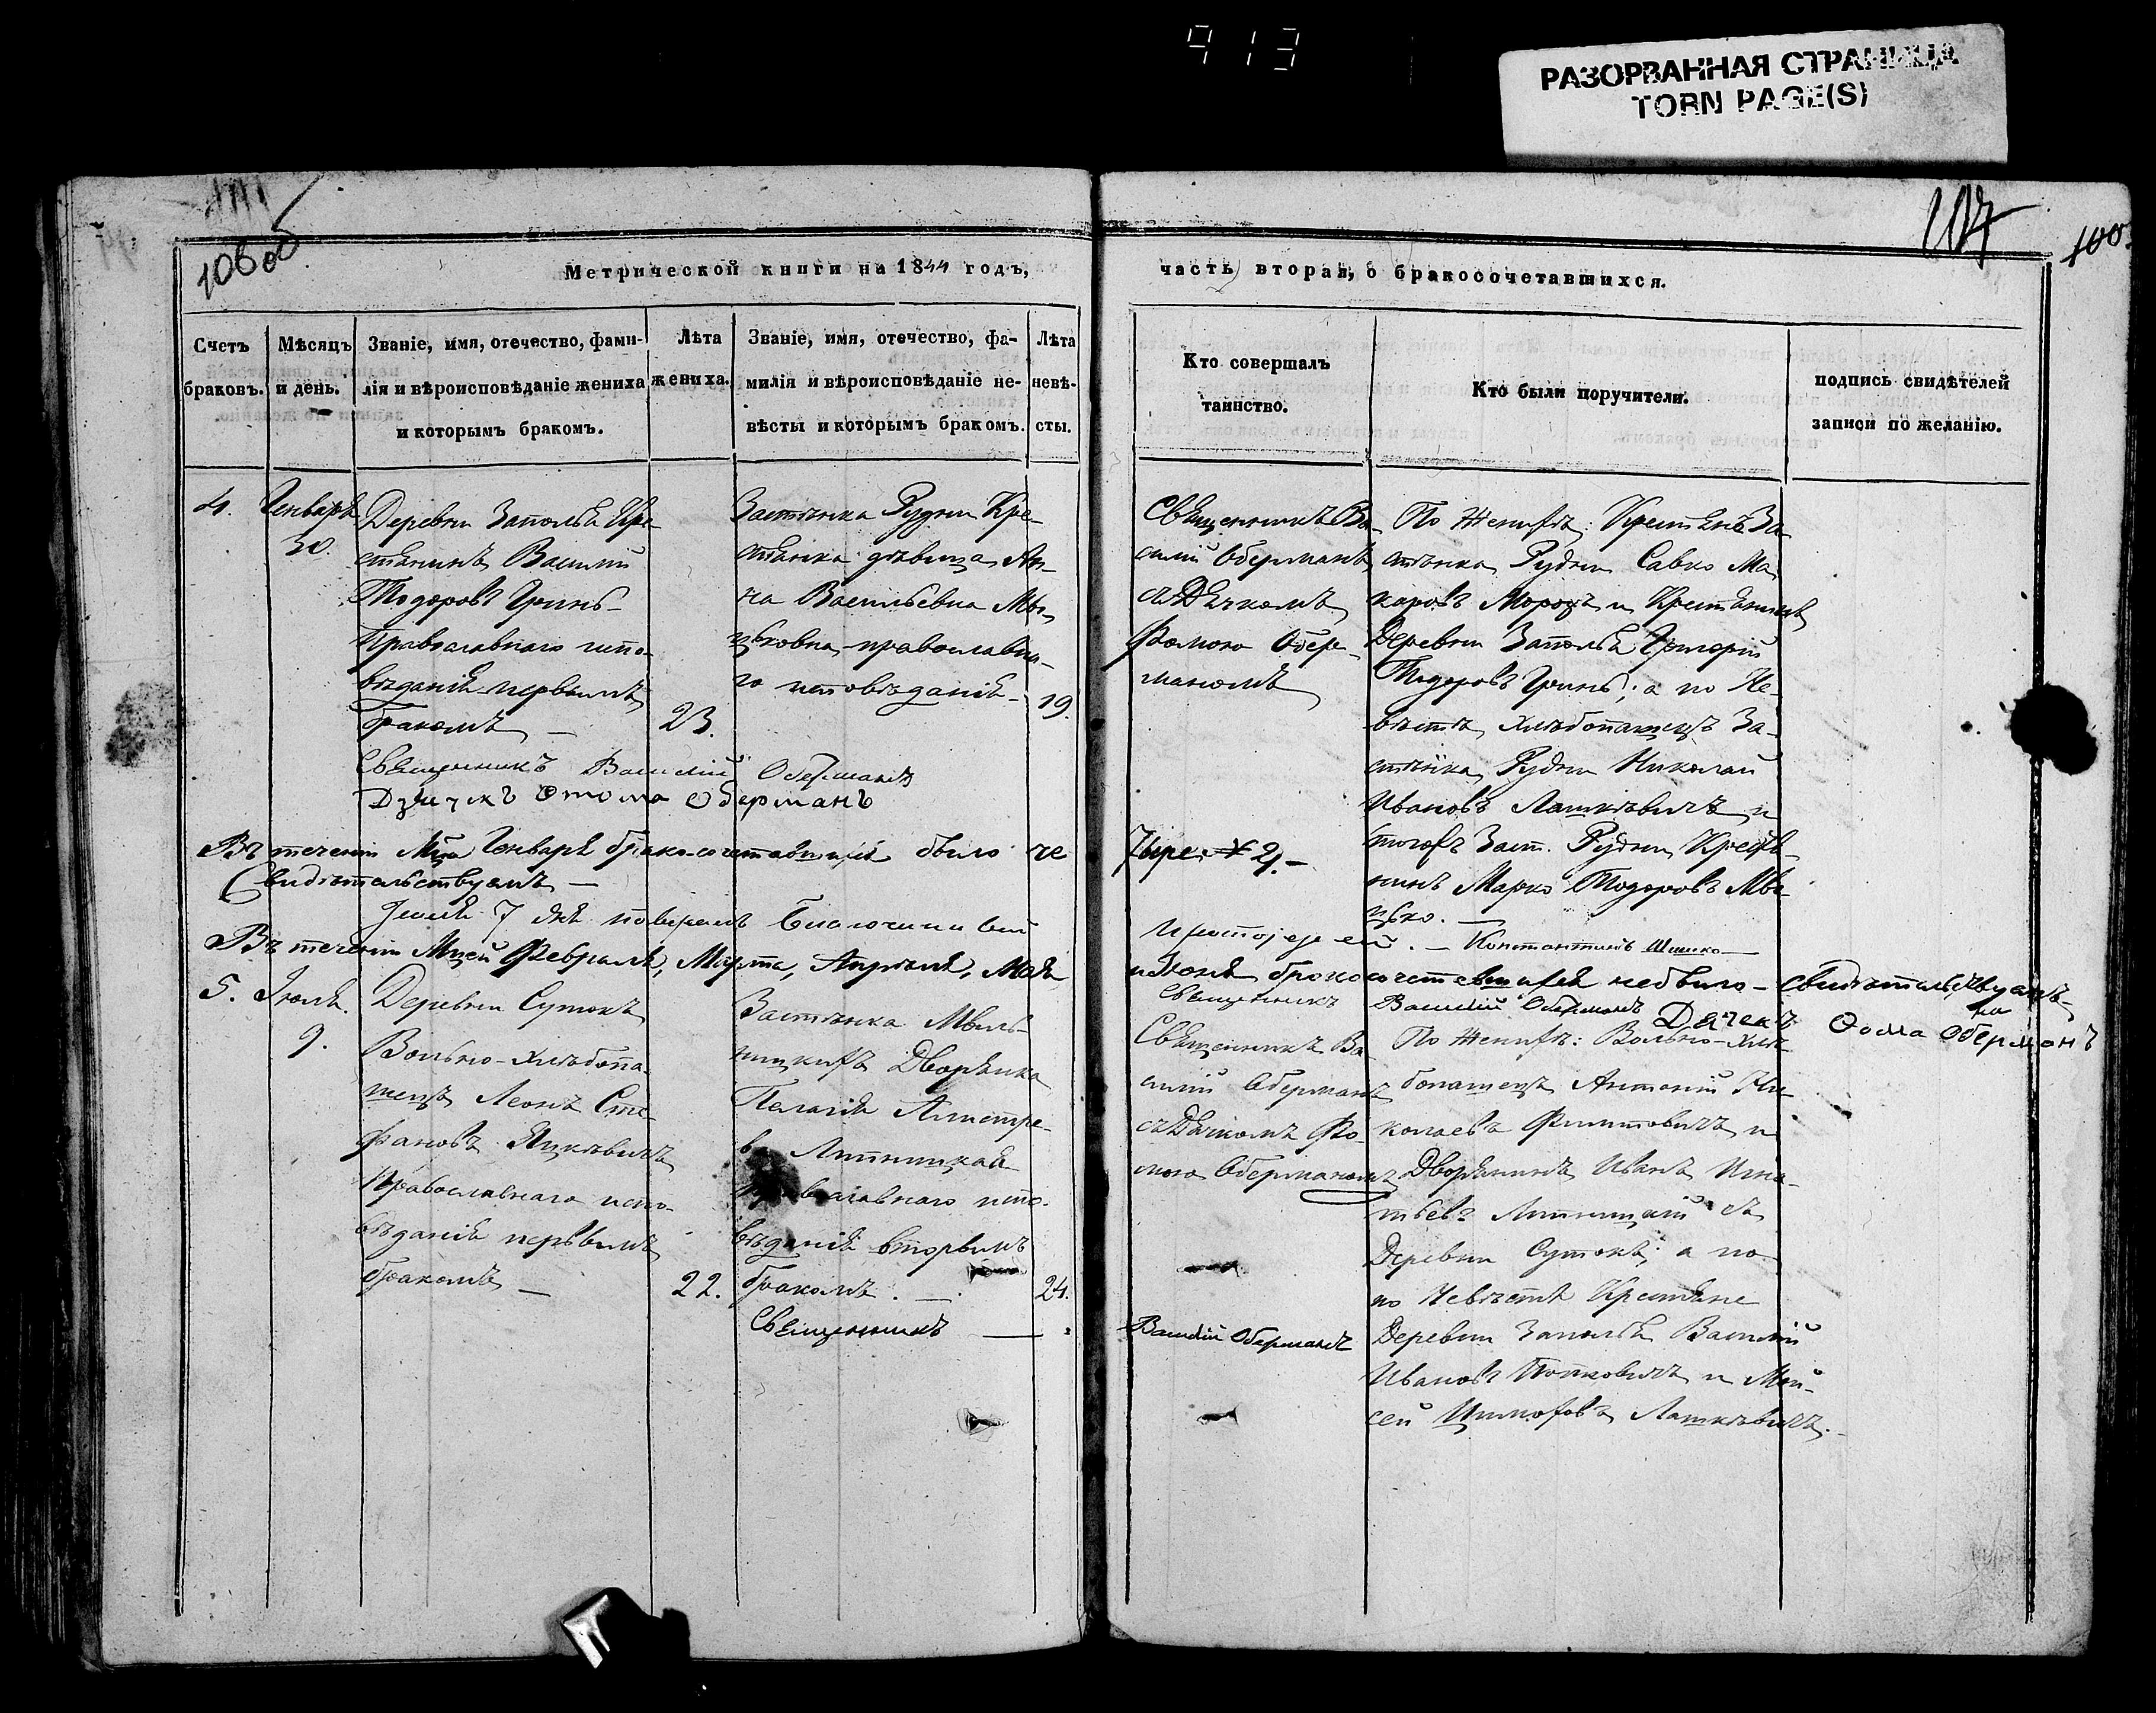 913
РАЗОРВАННАЯ СТРАНИЦА
TORN PAGE(S)
106 об
107
100
Метрической книги на 1844 годъ,
часть вторая, о бракосочетавшихся.
Счетъ
браковъ.
Мѣсяцъ
и день.
Званіе, имя, отечество, фами-
лія и вѣроисповѣданіе жениха
и которымъ бракомъ.
Лѣта
жениха.
Званіе, имя, отечество, фа-
милія и вѣроисповѣданіе не-
вѣсты и которымъ бракомъ.
Лѣта
невѣ-
сты.
Кто совершалъ
таинство.
Кто были поручители.
подпись свидѣтелей
записи по желанію.
4.
Генваря
30.
Деревни Заполья Кре-
стьянинъ Василій
Тодоровъ Гринь
Православнаго испо-
вѣданія первымъ
бракомъ —
23.
Застѣнка Рудни Кре-
стьянка дѣвица Ан-
на Васильевна
православна-
го исповѣданія —
19.
Священникъ Ва-
силій Оберманъ
съ Дьячкомъ
Фомою Обер-
маномъ
По Женихѣ: Крестьянъ За-
стѣнка Рудни Савко Ма-
каровъ Морозъ и Крестьянинъ
Деревни Заполья Григорій
Тодоровъ Гринь; а по Не-
вѣстѣ хлѣбопашецъ За-
стѣнка Рудни Николай
Ивановъ Лашкѣвичъ и
тогожъ Заст. Рудни Крестья-
нинъ Марко Тодоровъ Мы-
цько. —
Священникъ Василій Оберманъ
Дзячекъ Фома Оберманъ
Въ теченіи Мца Генваря бракосочетавшихся было че
тыре # 4. —
Свидѣтельствуемъ —
7 дня
Константинъ
Въ теченіи Мцей Февраля, Марта, Апрѣля, Мая
и Іюня бракосочетавшихся небыло — Свидѣтельствуемъ
Священникъ Василій Оберманъ Дячекъ Фома Оберманъ
5.
Іюля
9.
Деревни Сутокъ
Вольно-хлѣбопа-
шецъ Леонъ Сте-
фановъ Яцкѣвичъ
Православнаго испо-
вѣданія первымъ
бракомъ —
22.
Застѣнка
Дворянка
Пелагія
Православнаго испо-
вѣданія вторымъ
бракомъ. —
24.
Священникъ —
Василій Оберманъ
Священникъ Ва-
силій Оберманъ
съ Дьячкомъ Фо-
мою Оберманомъ
По Женихѣ: Вольно-хлѣ-
бопашецъ Антоній Ни-
колаевъ и
Дворянинъ Иванъ Игна-
тьевъ съ
Деревни Сутокъ; а по
по Невѣстѣ Крестьяне
Деревни Заполья Василій
Ивановъ и Мои-
сей Лашкѣвичъ. —